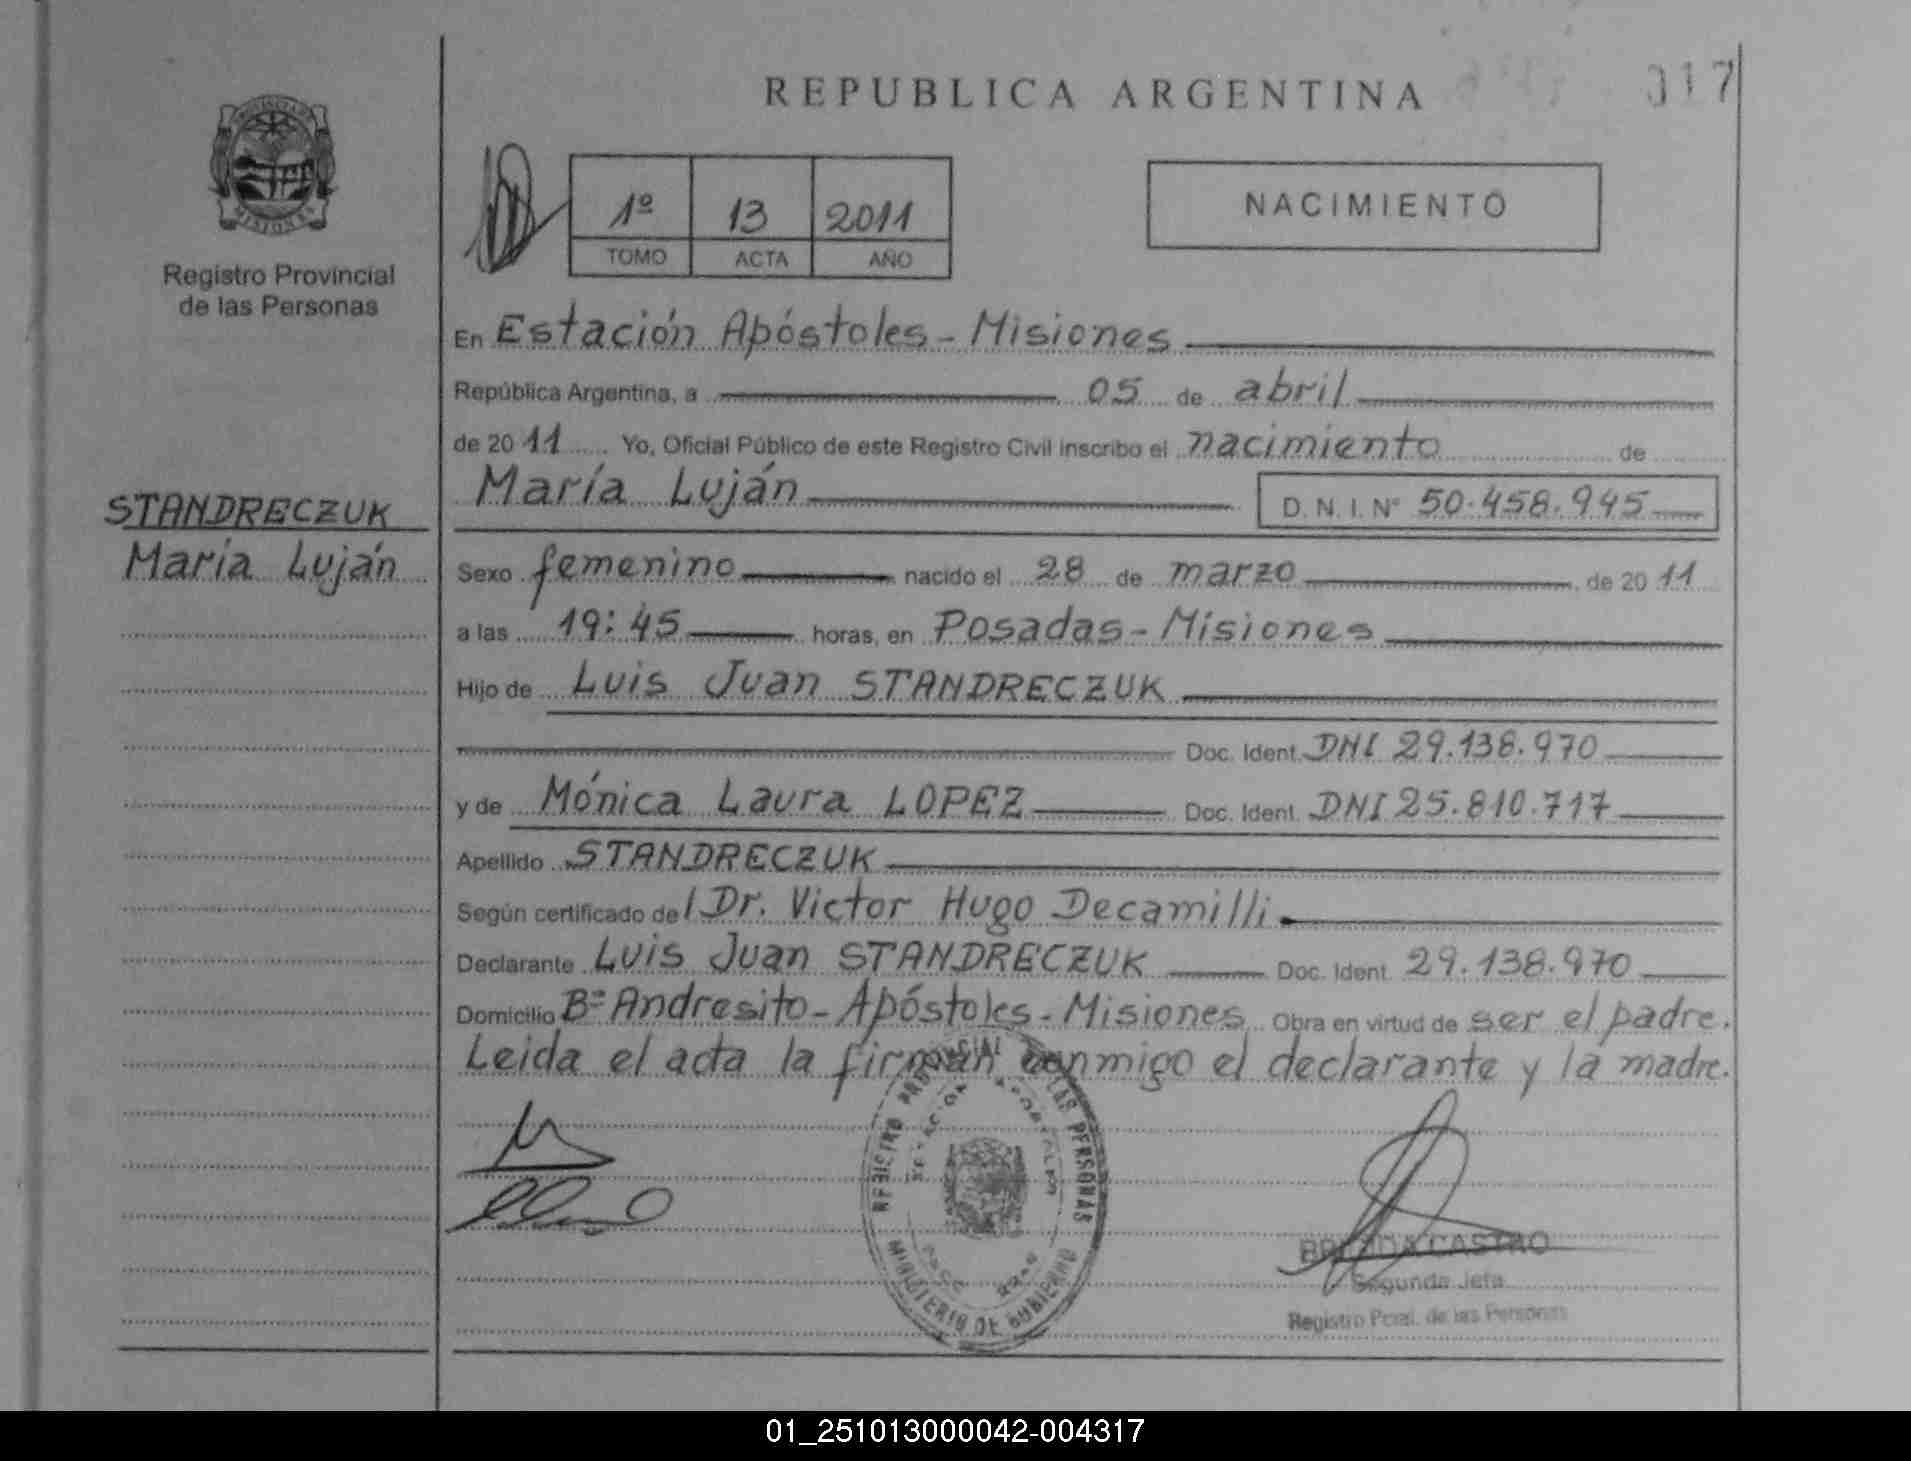 REPUBLICA ARGENTINA
017
PROVINCIA DE
MISIONES
Registro Provincial
de las Personas
1º 13 2011
TOMO ACTA AÑO
NACIMIENTO
En Estación Apóstoles - Misiones
República Argentina, a 05 de abril
de 20 11 Yo, Oficial Público de este Registro Civil inscribo el nacimiento de
María Luján D. N. I. Nº 50.458.945
STANDRECZUK
María Luján
Sexo femenino nacido el 28 de marzo de 20 11
a las 19:45 horas, en Posadas - Misiones
Hijo de Luis Juan STANDRECZUK
Doc. Ident. DNI 29.138.970
y de Mónica Laura LOPEZ Doc. Ident. DNI 25.810.717
Apellido STANDRECZUK
Según certificado del Dr. Victor Hugo Decamilli
Declarante Luis Juan STANDRECZUK Doc. Ident. 29.138.970
Domicilio Bº Andresito - Apóstoles - Misiones Obra en virtud de ser el padre.
Leida el acta la firman conmigo el declarante y la madre.
REGISTRO PROVINCIAL DE LAS PERSONAS
MINISTERIO DE GOBIERNO
CASTRO
Segunda Jefa
Registro Pcial. de las Personas
01_251013000042-004317